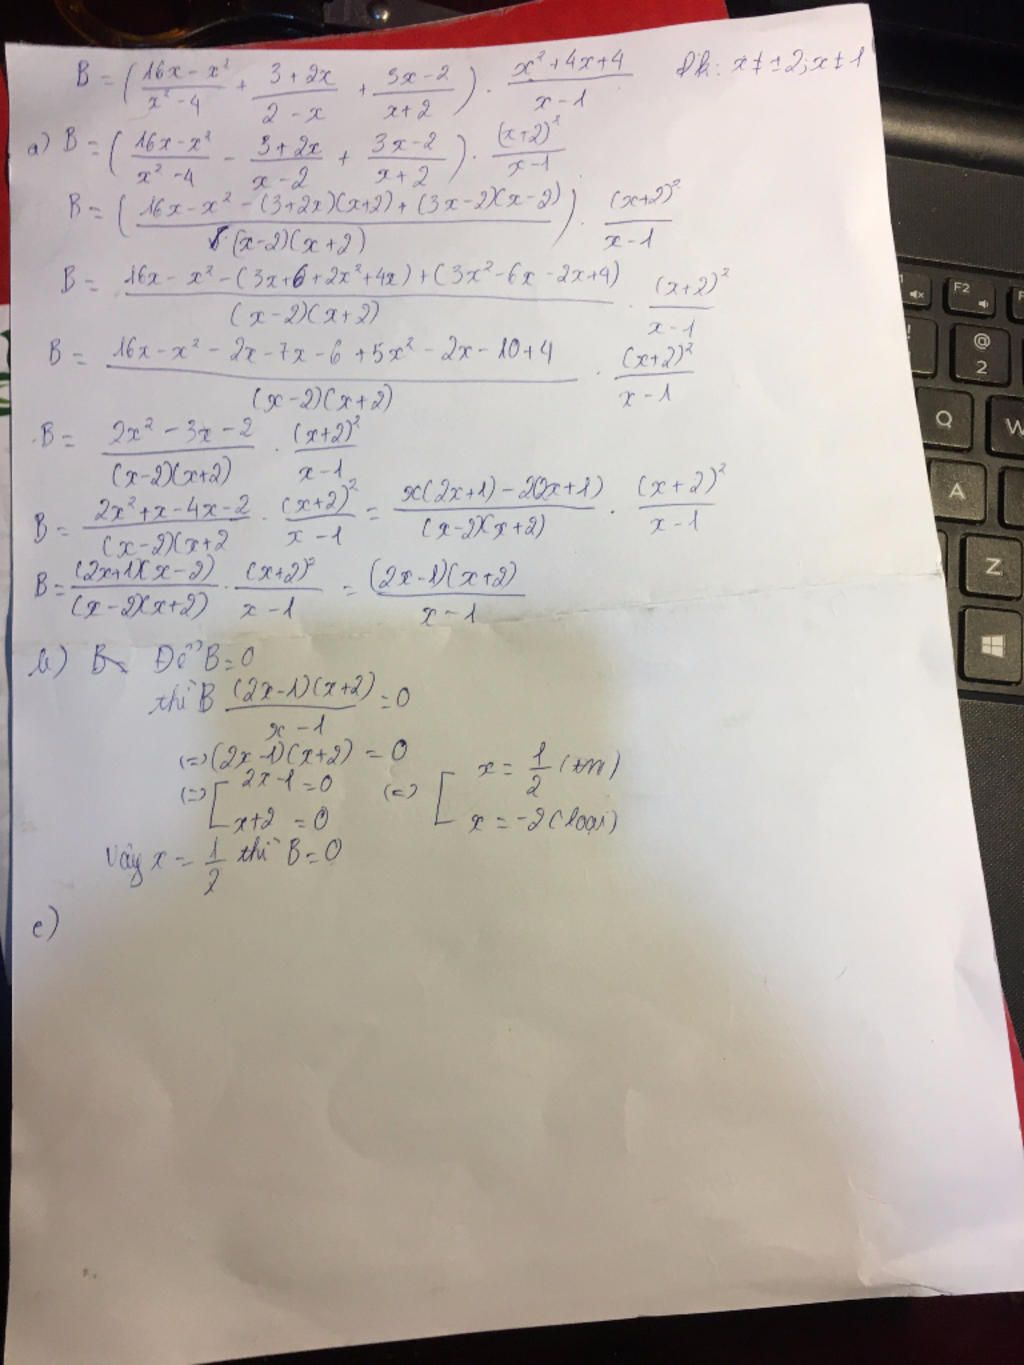 B = ( (16x - x²)/(x² - 4) + (3 + 2x)/(2 - x) + (3x - 2)/(x + 2) ) . (x² + 4x + 4)/(x - 1) Đk: x ≠ ±2; x ≠ 1
a) B = ( (16x - x²)/(x² - 4) - (3 + 2x)/(x - 2) + (3x - 2)/(x + 2) ) . (x+2)²/(x - 1)
B = ( (16x - x² - (3+2x)(x+2) + (3x-2)(x-2))/((x-2)(x+2)) ) . (x+2)²/(x - 1)
B = (16x - x² - (3x+6+2x²+4x) + (3x² - 6x - 2x+4))/((x-2)(x+2)) . (x+2)²/(x - 1)
B = (16x - x² - 2x - 7x - 6 + 5x² - 2x - 10 + 4)/((x-2)(x+2)) . (x+2)²/(x - 1)
B = (2x² - 3x - 2)/((x-2)(x+2)) . (x+2)²/(x - 1)
B = (2x² + x - 4x - 2)/((x-2)(x+2) . (x+2)²/(x - 1) = (x(2x+1) - 2(2x+1))/((x-2)(x+2)) . (x+2)²/(x - 1)
B = ((2x+1)(x-2))/((x-2)(x+2)) . (x+2)²/(x - 1) = ((2x-1)(x+2))/(x - 1)
b) Để B = 0
thì B ((2x-1)(x+2))/(x - 1) = 0
(=) (2x-1)(x+2) = 0
(=) [ 2x-1 = 0 (=) [ x = 1/2 (tm)
x+2 = 0 x = -2 (loại)
Vậy x = 1/2 thì B = 0
c)
F2
@
2
Q
W
A
Z